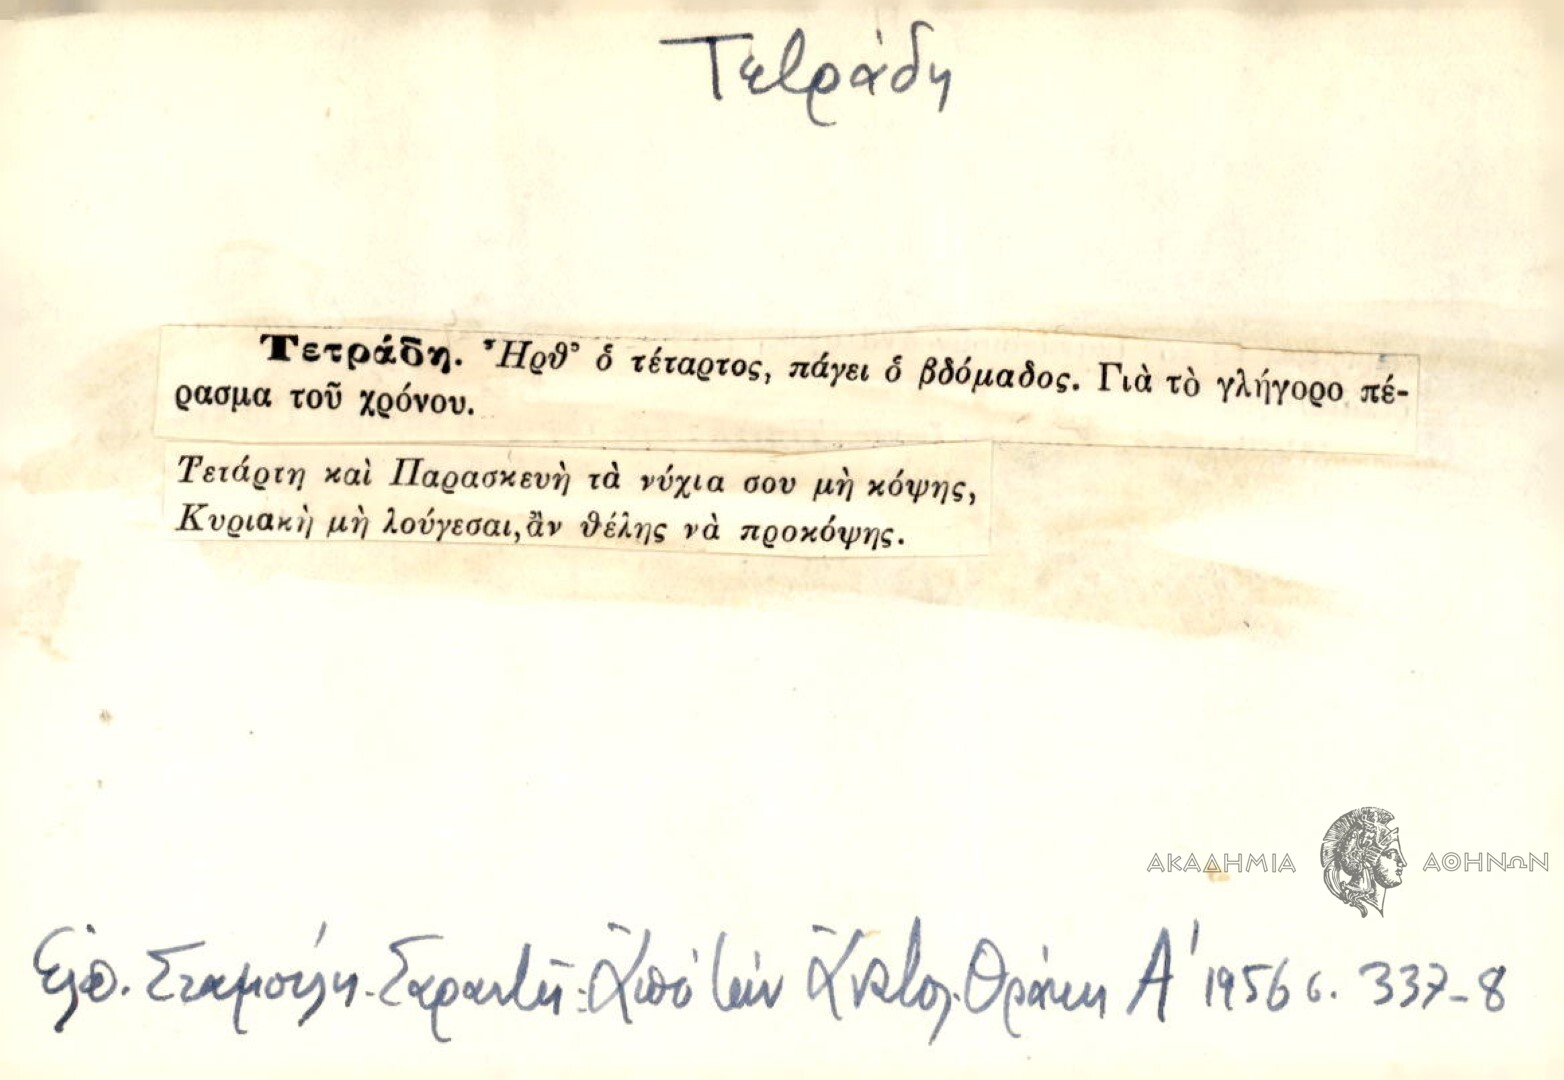 Τετράδη
Τετράδη. Ἦρθ' ὁ τέταρτος, πάγει ὁ βδόμαδος. Γιὰ τὸ γλήγορο πέ-
ρασμα τοῦ χρόνου.
Τετάρτη καὶ Παρασκευὴ τὰ νύχια σου μὴ κόψης,
Κυριακὴ μὴ λούγεσαι, ἂν θέλης νὰ προκόψης.
ΑΚΑΔΗΜΙΑ ΑΘΗΝΩΝ
Ελπ. Σταμούλη-Σαραντῆ: Ἀπὸ τὴν Ἀνατολ. Θράκη Α' 1956 σ. 337-8